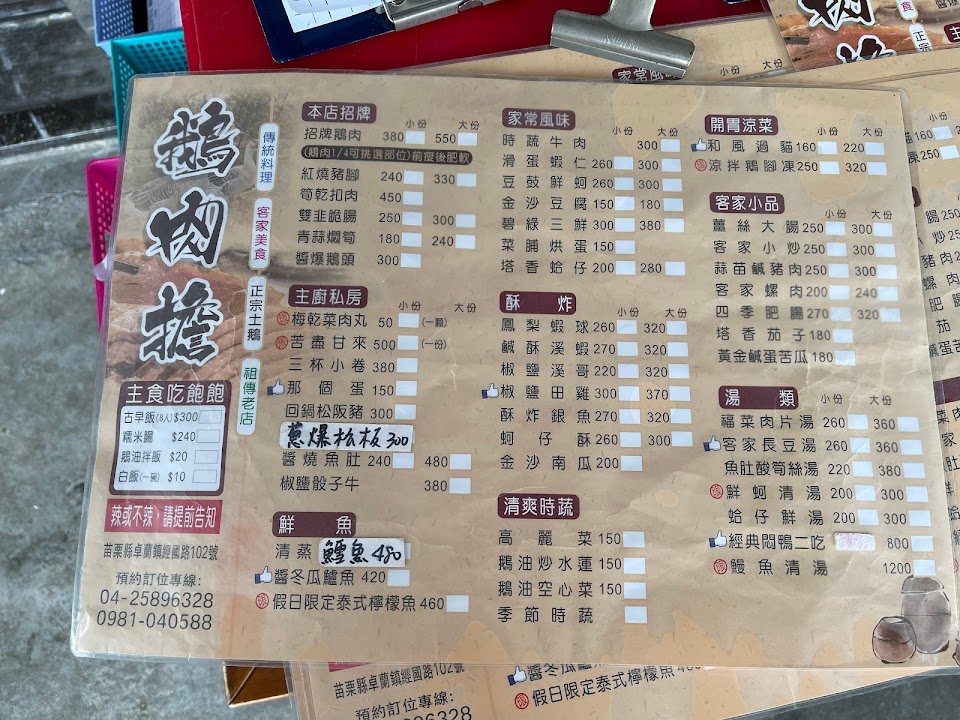 鵝肉擔
傳統料理
客家美食
正宗土鵝
祖傳老店
主食吃飽飽
古早飯(8人)$300
糯米腸 $240
鵝油拌飯 $20
白飯(一碗) $10
辣或不辣、請提前告知
苗栗縣卓蘭鎮經國路102號
預約訂位專線:
04-25896328
0981-040588
本店招牌 小份 大份
招牌鵝肉 380 550
(鵝肉1/4可挑選部位)前瘦後肥軟
紅燒豬腳 240 330
筍乾扣肉 450
雙韭脆腸 250 300
青蒜燜筍 180 240
醬爆鵝頭 300
主廚私房 小份 大份
梅乾菜肉丸 50 (一顆)
苦盡甘來 500 (一份)
三杯小卷 380
那個蛋 150
回鍋松阪豬 300
蔥爆松板 300
醬燒魚肚 240 480
椒鹽骰子牛 380
鮮魚
清蒸 鱸魚 480
醬冬瓜鱸魚 420
假日限定泰式檸檬魚 460
家常風味 小份 大份
時蔬牛肉 300
滑蛋蝦仁 260 300
豆鼓鮮蚵 260 300
金沙豆腐 150 180
碧綠三鮮 300 380
菜脯烘蛋 150
塔香蛤仔 200 280
酥炸 小份 大份
鳳梨蝦球 260 320
鹹酥溪蝦 270 320
椒鹽溪哥 220 320
椒鹽田雞 300 370
酥炸銀魚 270 320
蚵仔酥 260 300
金沙南瓜 200
清爽時蔬
高麗菜 150
鵝油炒水蓮 150
鵝油空心菜 150
季節時蔬
開胃涼菜 小份 大份
和風過貓 160 220
涼拌鵝腳凍 250 320
客家小品 小份 大份
薑絲大腸 250 300
客家小炒 250 300
蒜苗鹹豬肉 250 300
客家螺肉 200 240
四季肥腸 270 320
塔香茄子 180
黃金鹹蛋苦瓜 180
湯類 小份 大份
福菜肉片湯 260 300
客家長豆湯 260 300
魚肚酸筍絲湯 220 380
鮮蚵清湯 200 300
蛤仔鮮湯 200 300
經典悶鴨二吃 800
鰻魚清湯 1200
醬冬瓜鱸魚
假日限定泰式檸檬魚
苗栗縣卓蘭鎮經國路102號
預約訂位專線: